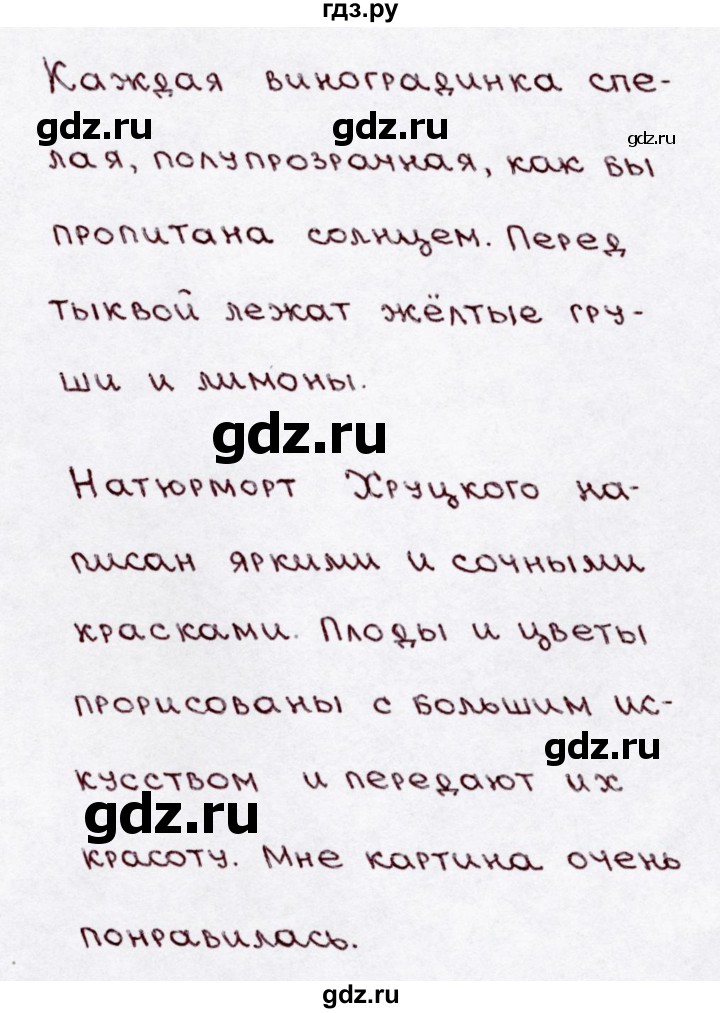 гдз.ру
Каждая виноградинка спе-
gdz.ru gdz.ru gdz.ru
лая, полупрозрачная, как бы
пропитана солнцем. Перед
тыквой лежат жёлтые гру-
ши и лимоны.
gdz.ru
Натюрморт Хруцкого на-
писан яркими и сочными
красками. Плоды и цветы
прорисованы с большим ис-
gdz.ru
кусством и передают их
gdz.ru
красоту. Мне картина очень
понравилась.
gdz.ru